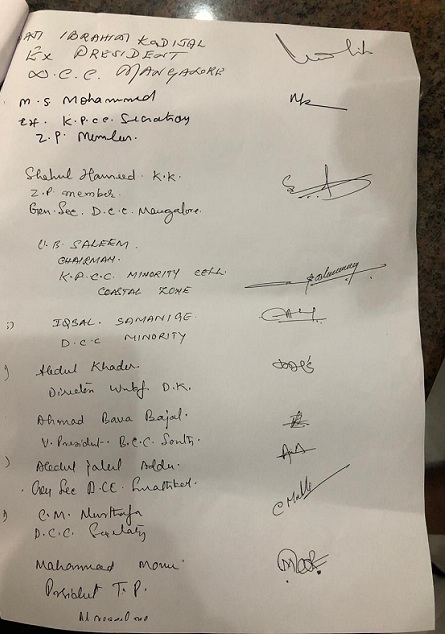 IBRAHIM KODIJAL
Ex PRESIDENT
D.C.C. MANGALORE
M.S Mohammed
Ex. K.P.C.C. Secretary
Z.P. Member.
Shahul Hameed K.K.
Z.P. member
Gen. Sec. D.C.C. Mangalore.
U.B. SALEEM.
CHAIRMAN.
K.P.C.C MINORITY CELL.
COASTAL ZONE
IQBAL. SAMANIGE
D.C.C MINORITY
Abdul Khader.
Director D.K.
Ahmad Bava Bajal.
V. President B.C.C. South.
Abdul Jaleel Addu.
Gen Sec D.C.C.
C.M. Musthafa
D.C.C. Secretary
Mahammad Monu
President T.P.